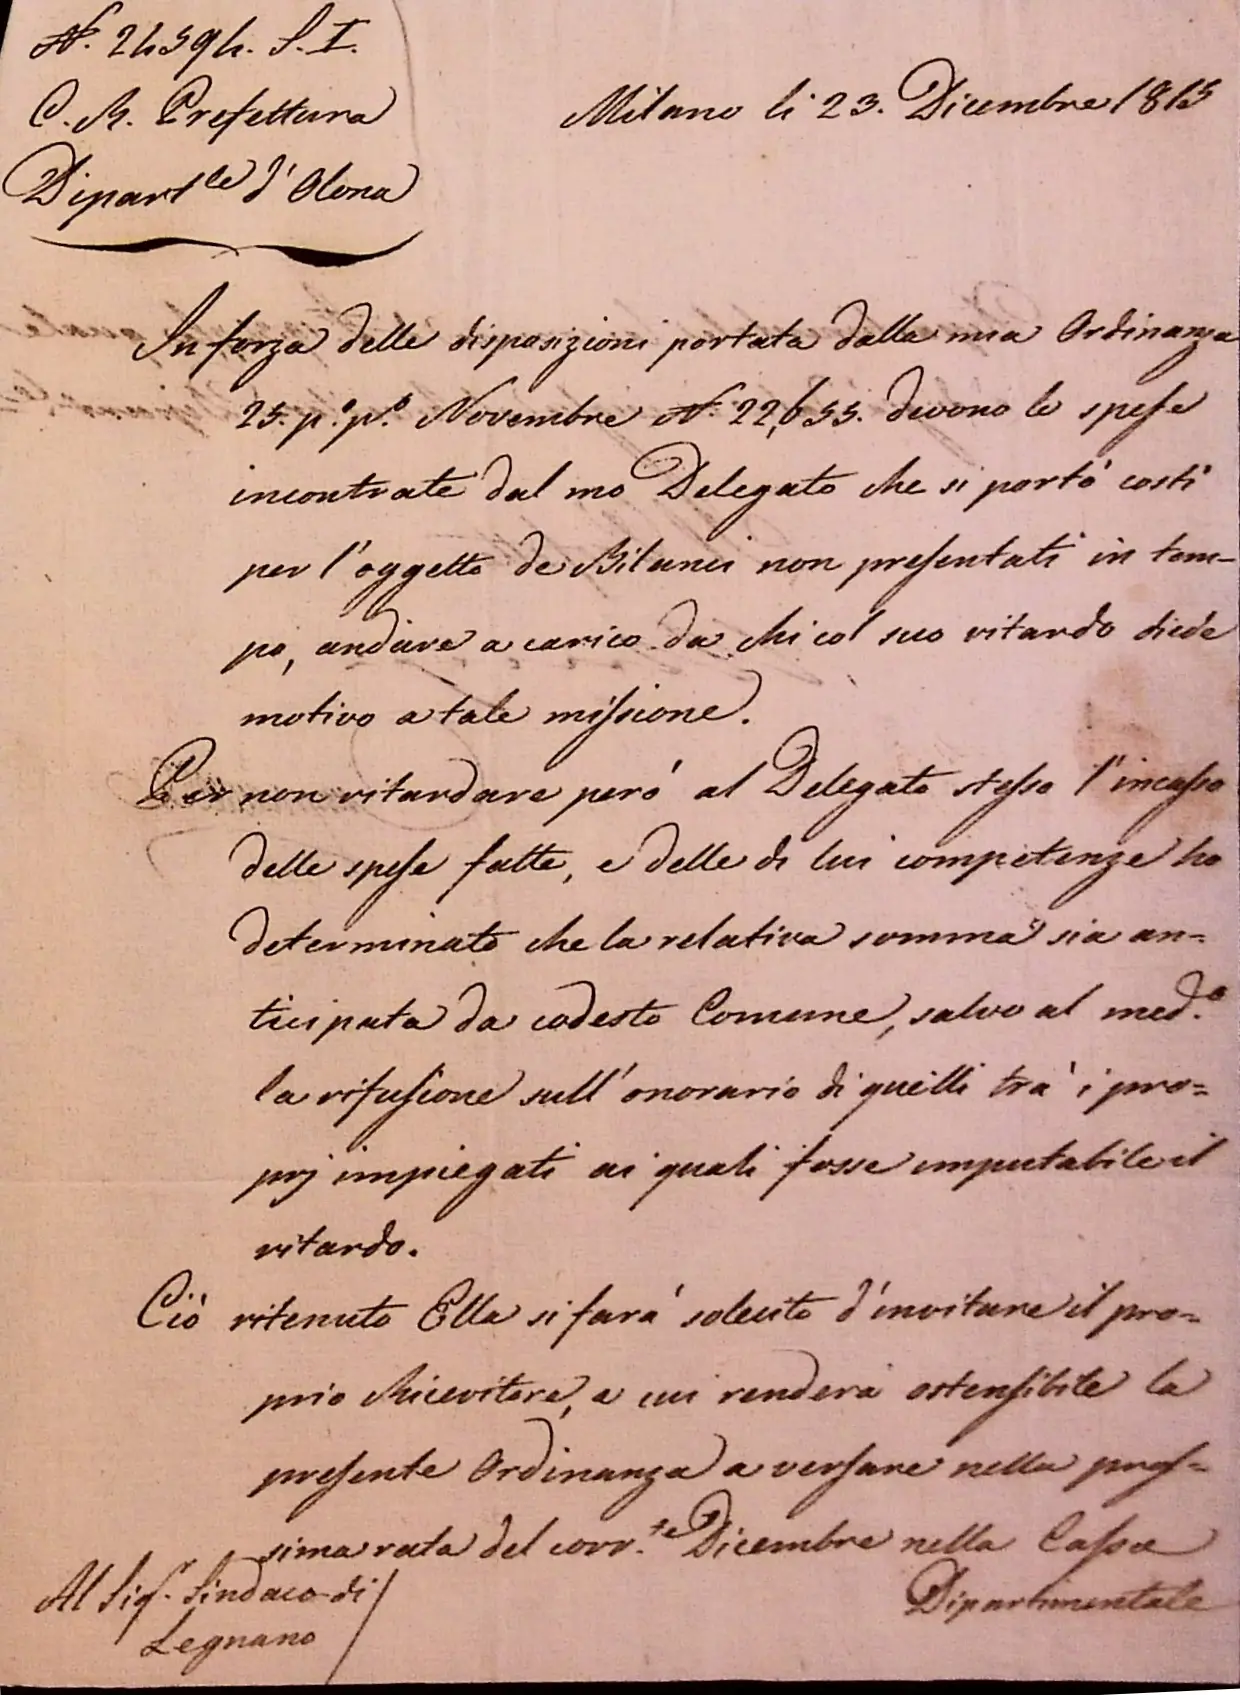 N. 24594. S. I.
C. R. Prefettura
Dipart.le d'Olona
Milano li 23. Dicembre 1815
In forza delle disposizioni portata dalla mia Ordinanza
25. p.o p.o Novembre N. 22,655. devono le spese
incontrate dal mo Delegato che si portò costì
per l'oggetto de Bilanci non presentati in tem-
po, andare a carico da chi col suo ritardo diede
motivo a tale missione.
Per non ritardare però al Delegato stesso l'incasso
delle spese fatte, e delle di lui competenze ho
determinato che la relativa somma sia an-
ticipata da codesto Comune, salvo al med.o
la rifusione sull'onorario di quelli trà i pro-
prj impiegati ai quali fosse imputabile il
ritardo.
Ciò ritenuto Ella si farà solecito d'invitare il pro-
prio Ricevitore, a cui renderà ostensibile la
presente Ordinanza a versare nella pros-
sima rata del corr.te Dicembre nella Cassa
Dipartimentale
Al Sig.r Sindaco di
Legnano